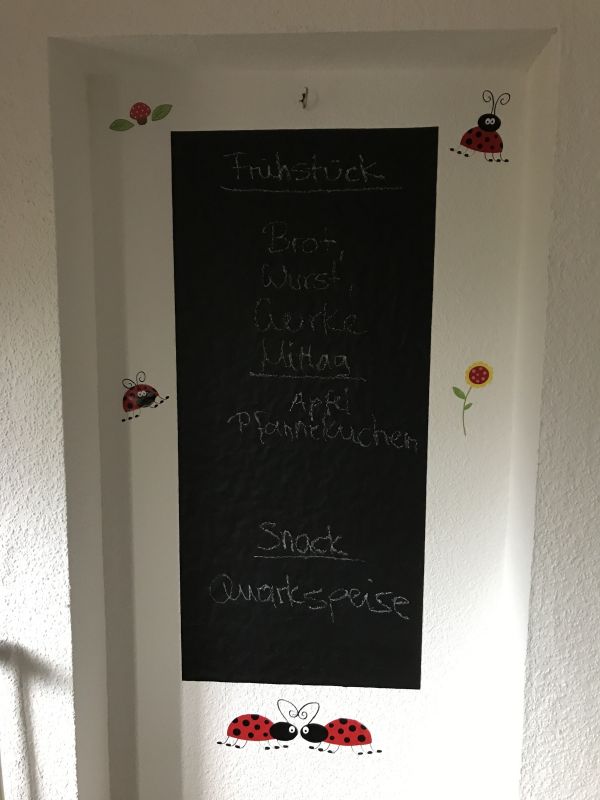 Frühstück
Brot,
Wurst,
Gurke
Mittag
Apfel
Pfannekuchen
Snack
Quarkspeise